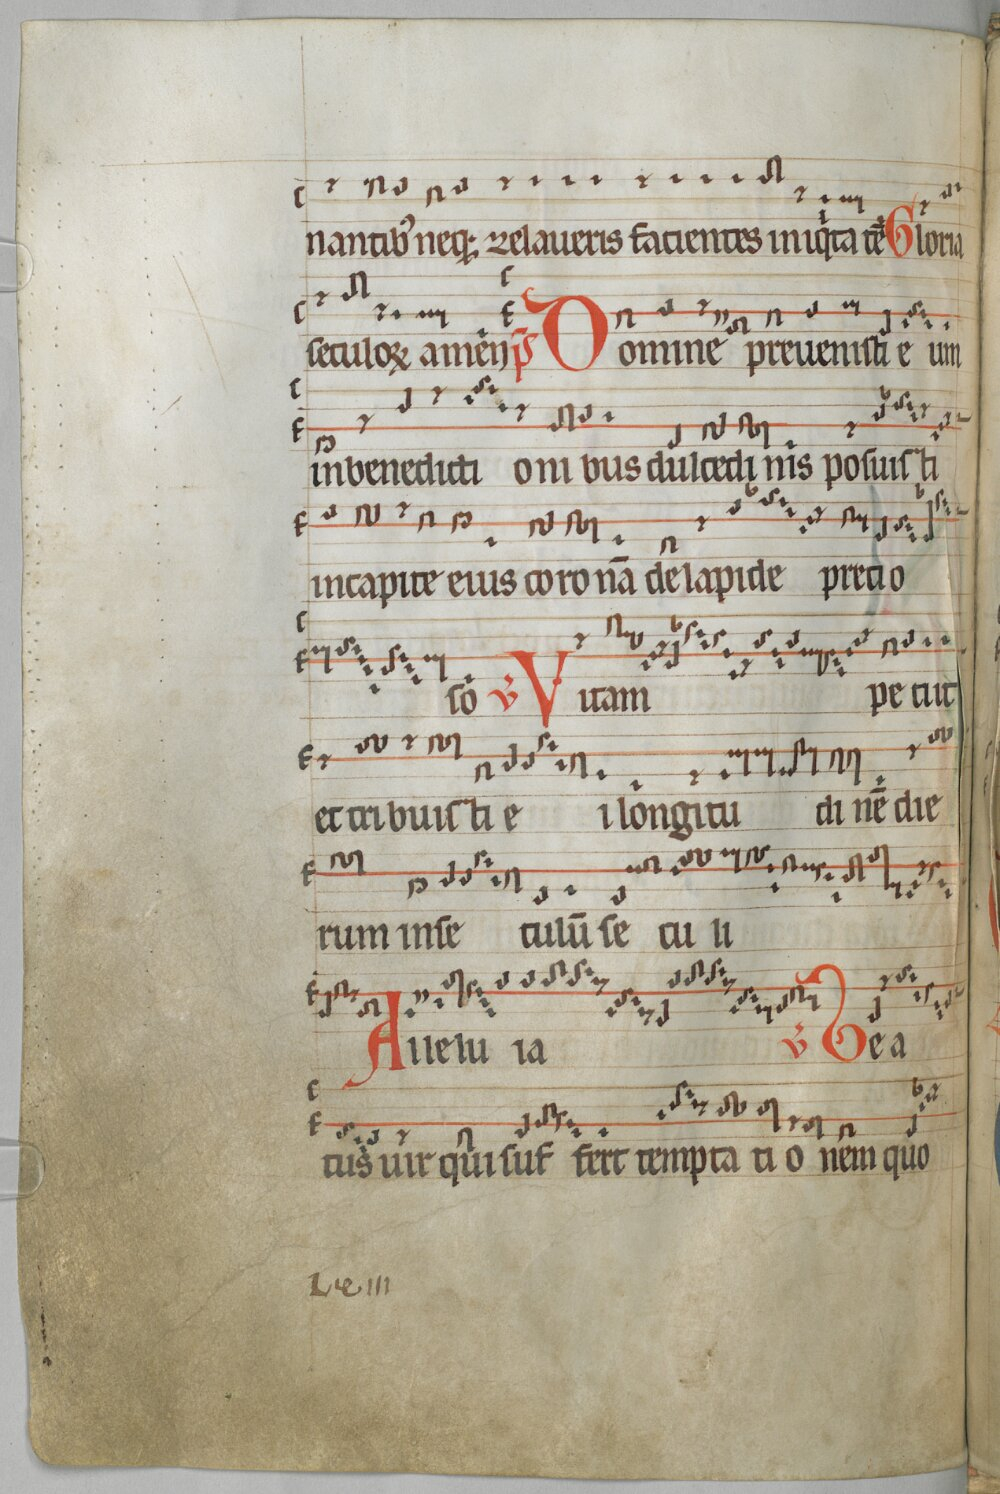 nantib⁹ neq; zelaueris facientes iniq̇ta tē Gloria
seculoꝝ amen ps̄ Domine preuenisti e um
inbenedicti oni bus dulcedi nis posuisti
incapite eius coro nā delapide precio
so ℣ Vitam pe tiit
et tribuisti e i longitu di nē die
rum inse culū se cu li
Allelu ia ℣ Bea
tus uir qui suf fert tempta ti o nem quo